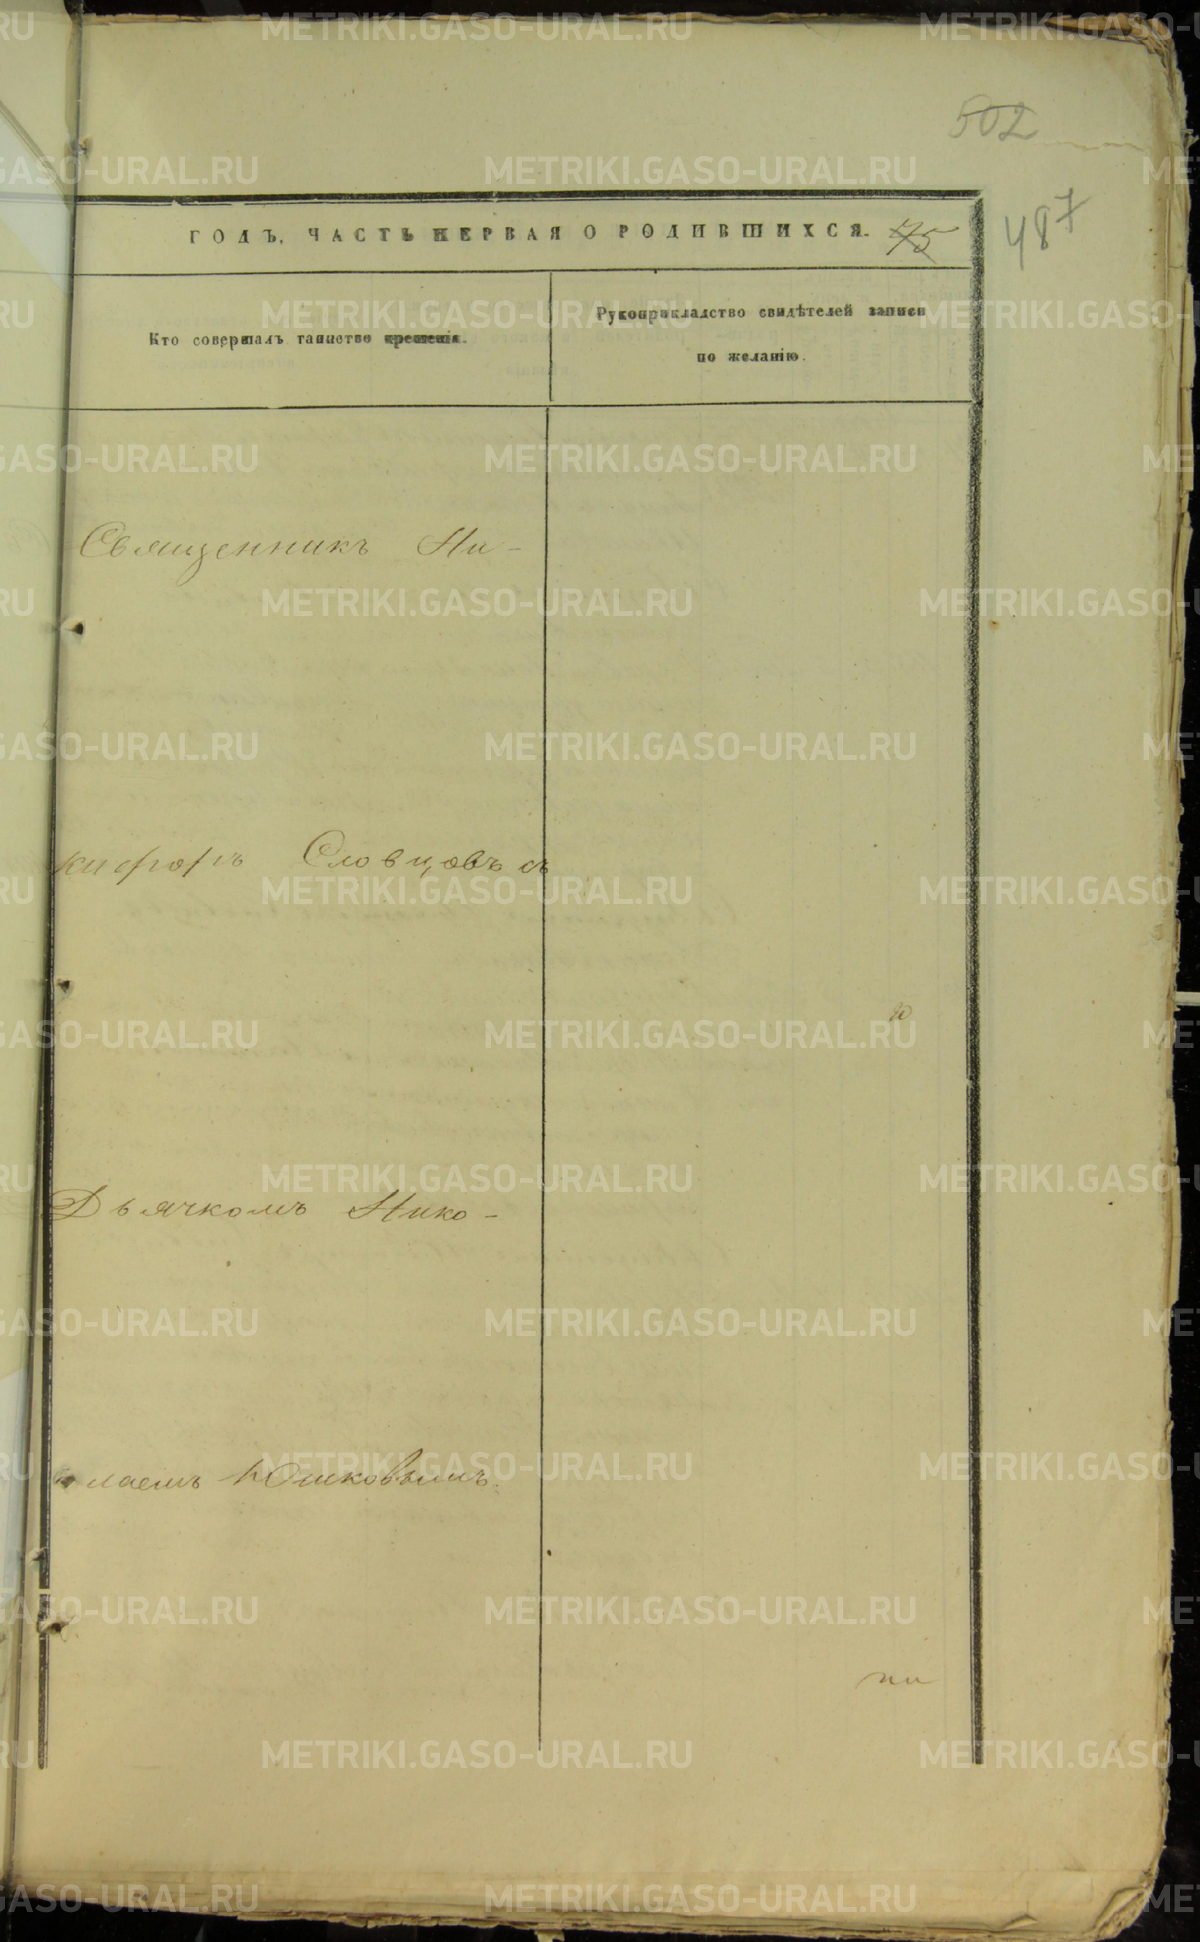 METRIKI.GASO-URAL.RU
502
487
ГОДЪ, ЧАСТЬ ПЕРВАЯ О РОДИВШИХСЯ. 45
Кто совершалъ таинство крещенія.
Рукоприкладство свидѣтелей записи
по желанію.
Священникъ Ни-
кифоръ Словцовъ съ
Дьячкомъ Нико-
лаемъ Юшковымъ.